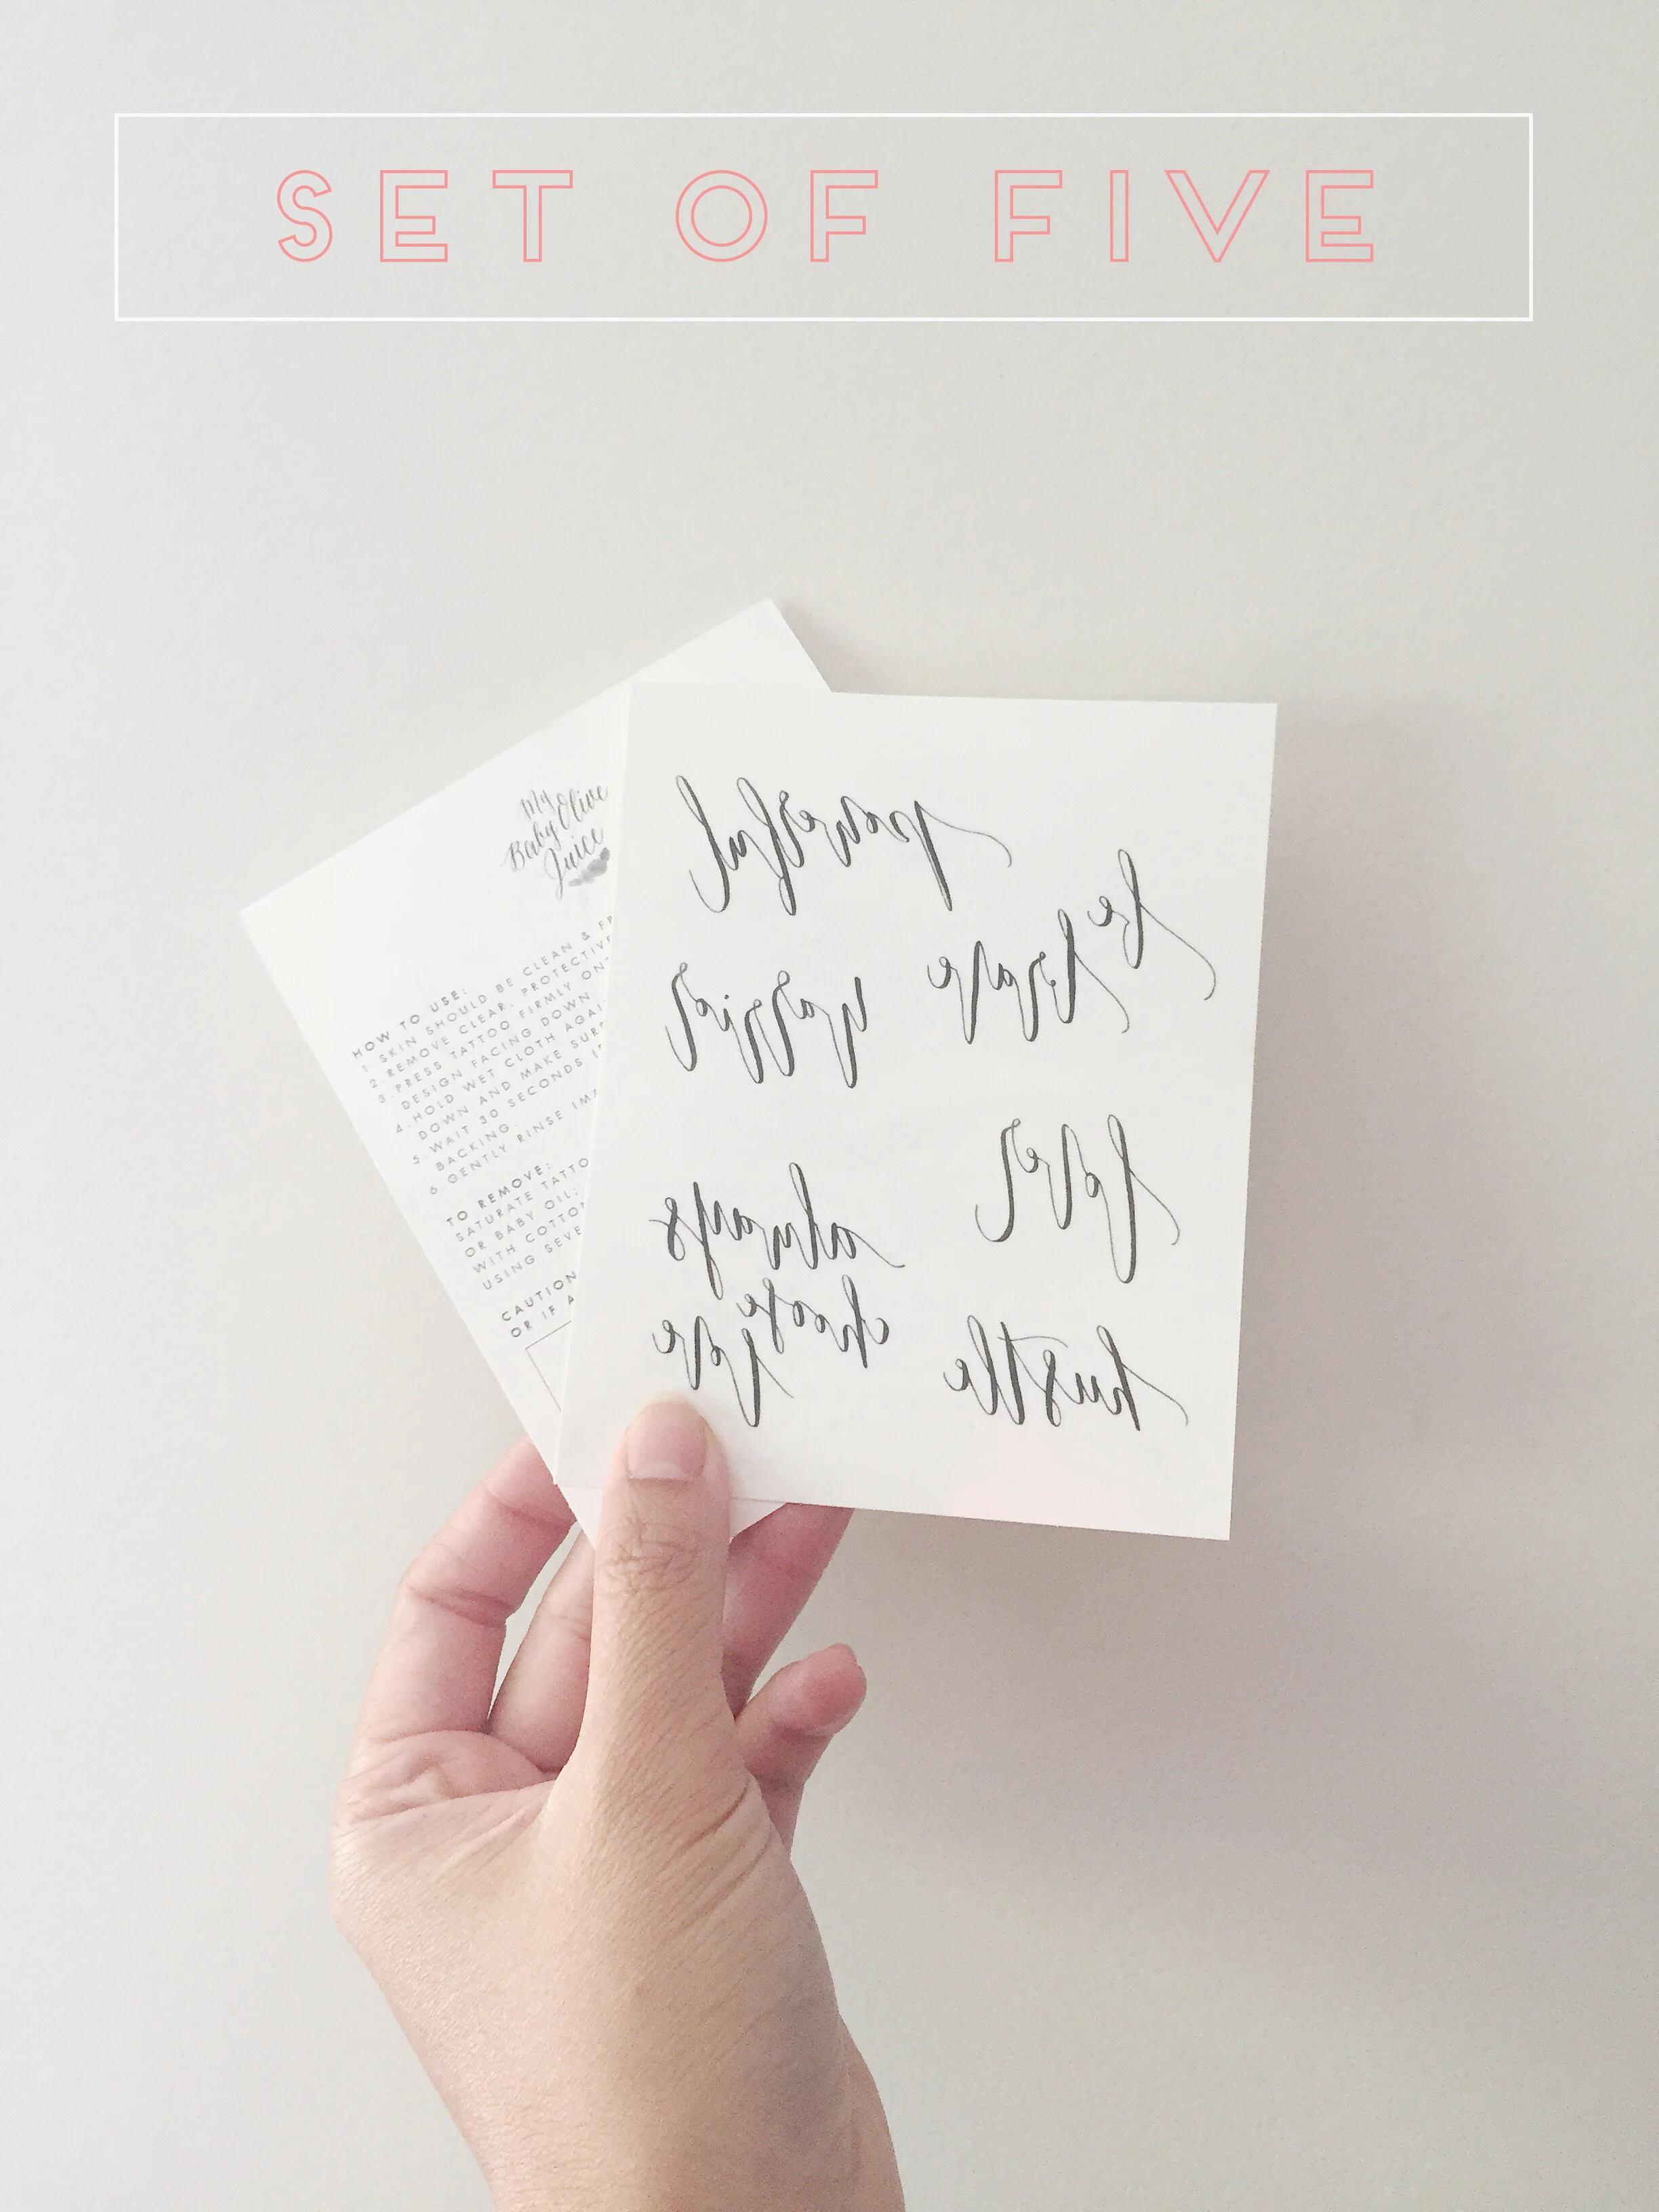 SET OF FIVE
My
Baby Olive
Juice
HOW TO USE:
1. SKIN SHOULD BE CLEAN & FR
2. REMOVE CLEAR, PROTECTIVE
3. PRESS TATTOO FIRMLY ONT
DESIGN FACING DOWN
4. HOLD WET CLOTH AGAI
DOWN AND MAKE SURE
5. WAIT 30 SECONDS (
BACKING.
6. GENTLY RINSE IMA
TO REMOVE:
SATURATE TATTO
OR BABY OIL;
WITH COTTON
USING SEVE
CAUTION
OR IF A
powerful
be
brave
warrior
lover
always
choose
love
hustle